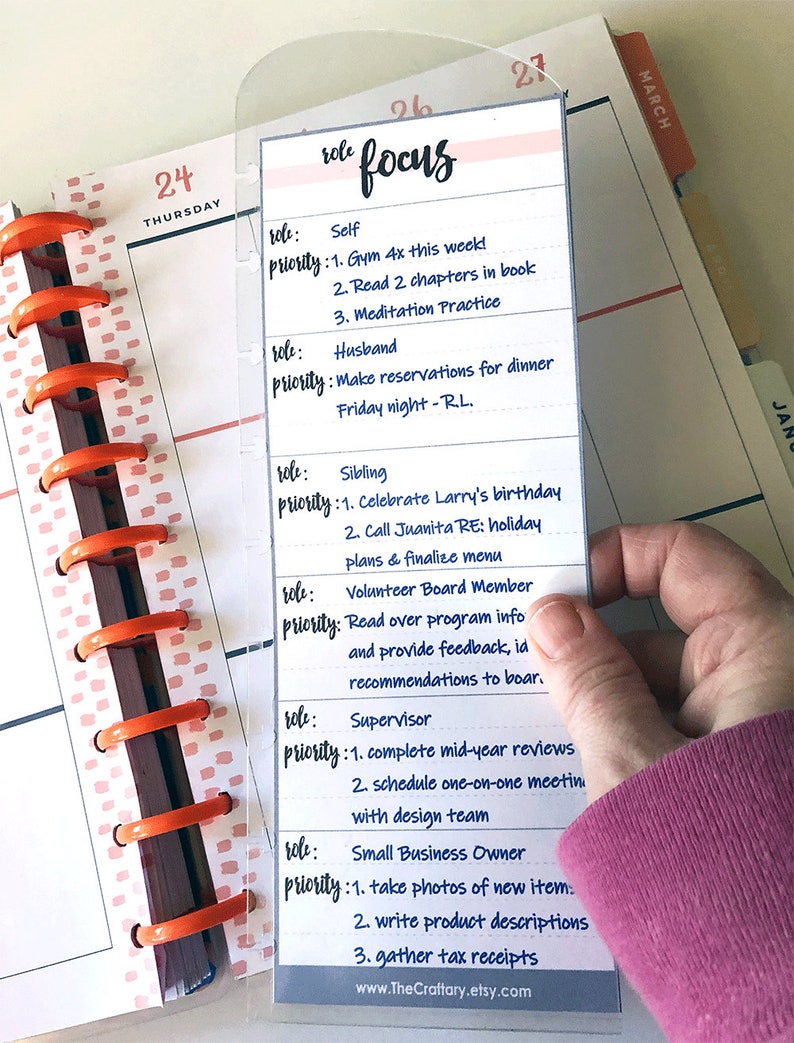 27
26
24
THURSDAY
MARCH
role focus
role: Self
priority: 1. Gym 4x this week!
2. Read 2 chapters in book
3. Meditation Practice
role: Husband
priority: Make reservations for dinner
Friday night - R.L.
role: Sibling
priority: 1. Celebrate Larry's birthday
2. Call Juanita RE: holiday
plans & finalize menu
role: Volunteer Board Member
priority: Read over program info
and provide feedback,
recommendations to
role: Supervisor
priority: 1. complete mid-year reviews
2. schedule one-on-one
with design team
role: Small Business Owner
priority: 1. take photos of new items
2. write product descriptions
3. gather tax receipts
www.TheCraftary.etsy.com